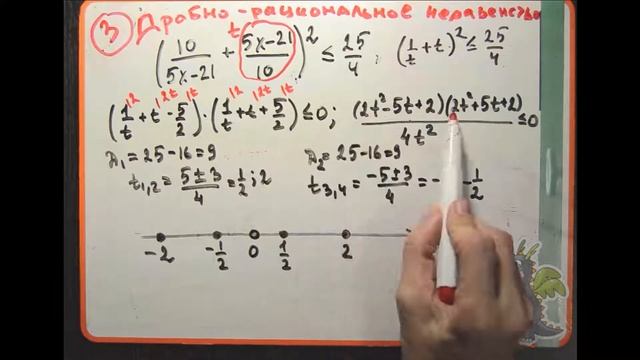 ③ Дробно-рациональное неравенство
(10/(5x-21) + (5x-21)/10)² ≤ 25/4   (1/t + t)² ≤ 25/4
t
(1/t + t - 5/2)·(1/t + t + 5/2) ≤ 0; (2t²-5t+2)(2t²+5t+2)/4t² ≤ 0
12 12t 1t 12 12t 1t
Д₁ = 25-16=9   Д₂ = 25-16=9
t₁,₂ = (5±3)/4 = 1/2; 2   t₃,₄ = (-5±3)/4 = - -1/2
-2 -1/2 0 1/2 2